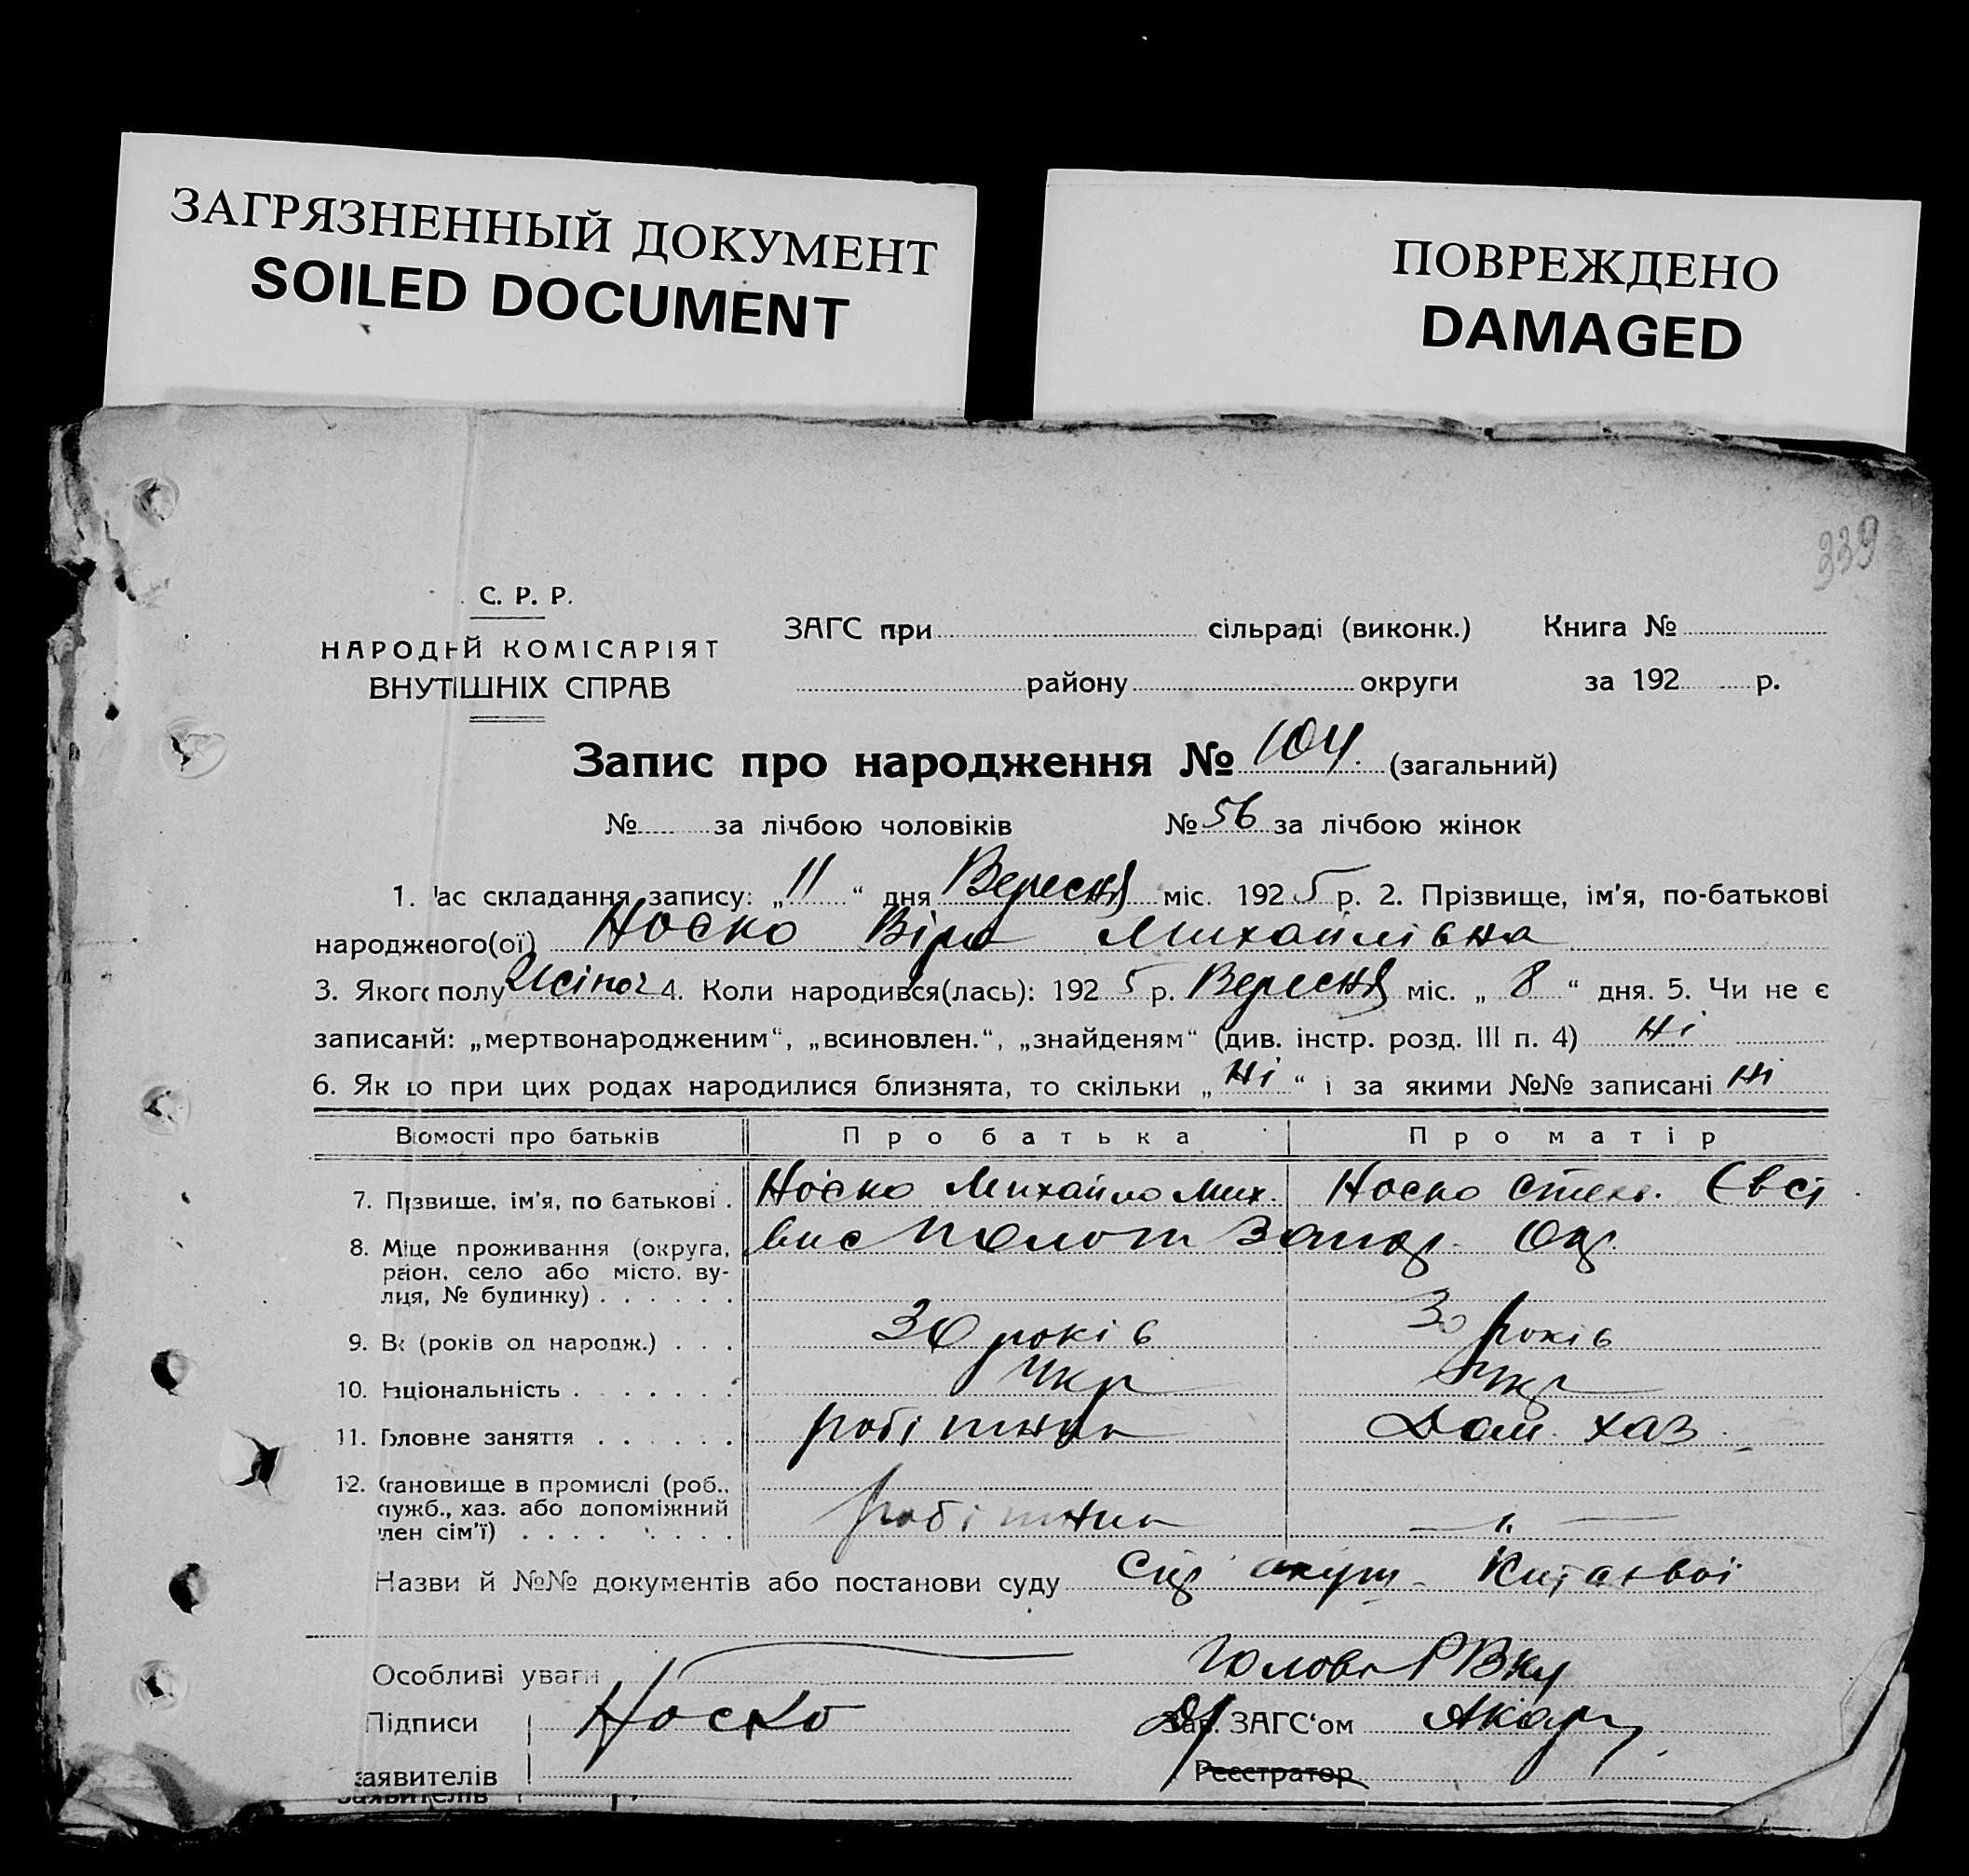 ЗАГРЯЗНЕННЫЙ ДОКУМЕНТ
SOILED DOCUMENT
ПОВРЕЖДЕНО
DAMAGED
339
С. Р. Р.
НАРОДН-Й КОМІСАРІЯТ
ВНУТІШНІХ СПРАВ
ЗАГС при сільраді (виконк.) Книга №
району округи за 192 р.
Запис про народження № 104. (загальний)
№ за лічбою чоловіків № 56 за лічбою жінок
1. ас складання запису: „ 11 “ дня Вересня міс. 192 5 р. 2. Прізвище, ім'я, по-батькові
народженого(ої) Носко Віра Михайлівна
3. Якого полу 4. Коли народився(лась): 192 5 р. Вересня міс. „ 8 “ дня. 5. Чи не є
записаний: „мертвонародженим“, „всиновлен.“, „знайденям“ (див. інстр. розд. III п. 4) Ні
6. Як о при цих родах народилися близнята, то скільки „ Ні “ і за якими №№ записані Ні
Відомості про батьків Про батька Про матір
7. Прізвище, ім'я, по батькові . Носко Михайло Мих. Носко Степ. Євст
8. Міце проживання (округа, вис Полот Запор. Окр.
район, село або місто, ву-
лиця, № будинку) . . . . . .
9. Вік (років од народж.) . . . 30 років 30 років
10. Національність . . . . . . . Укр Укр
11. Головне заняття . . . . . . робітник Дом. хаз.
12. Становище в промислі (роб.,
служб., хаз. або допоміжний
член сім'ї) . . . . . . . . робітник — „ —
Назви й №№ документів або постанови суду акуш.
Особливі уваги Голова РВК
Підписи Носко Зав. ЗАГС‘ом
заявителів Реєстратор
заявителів